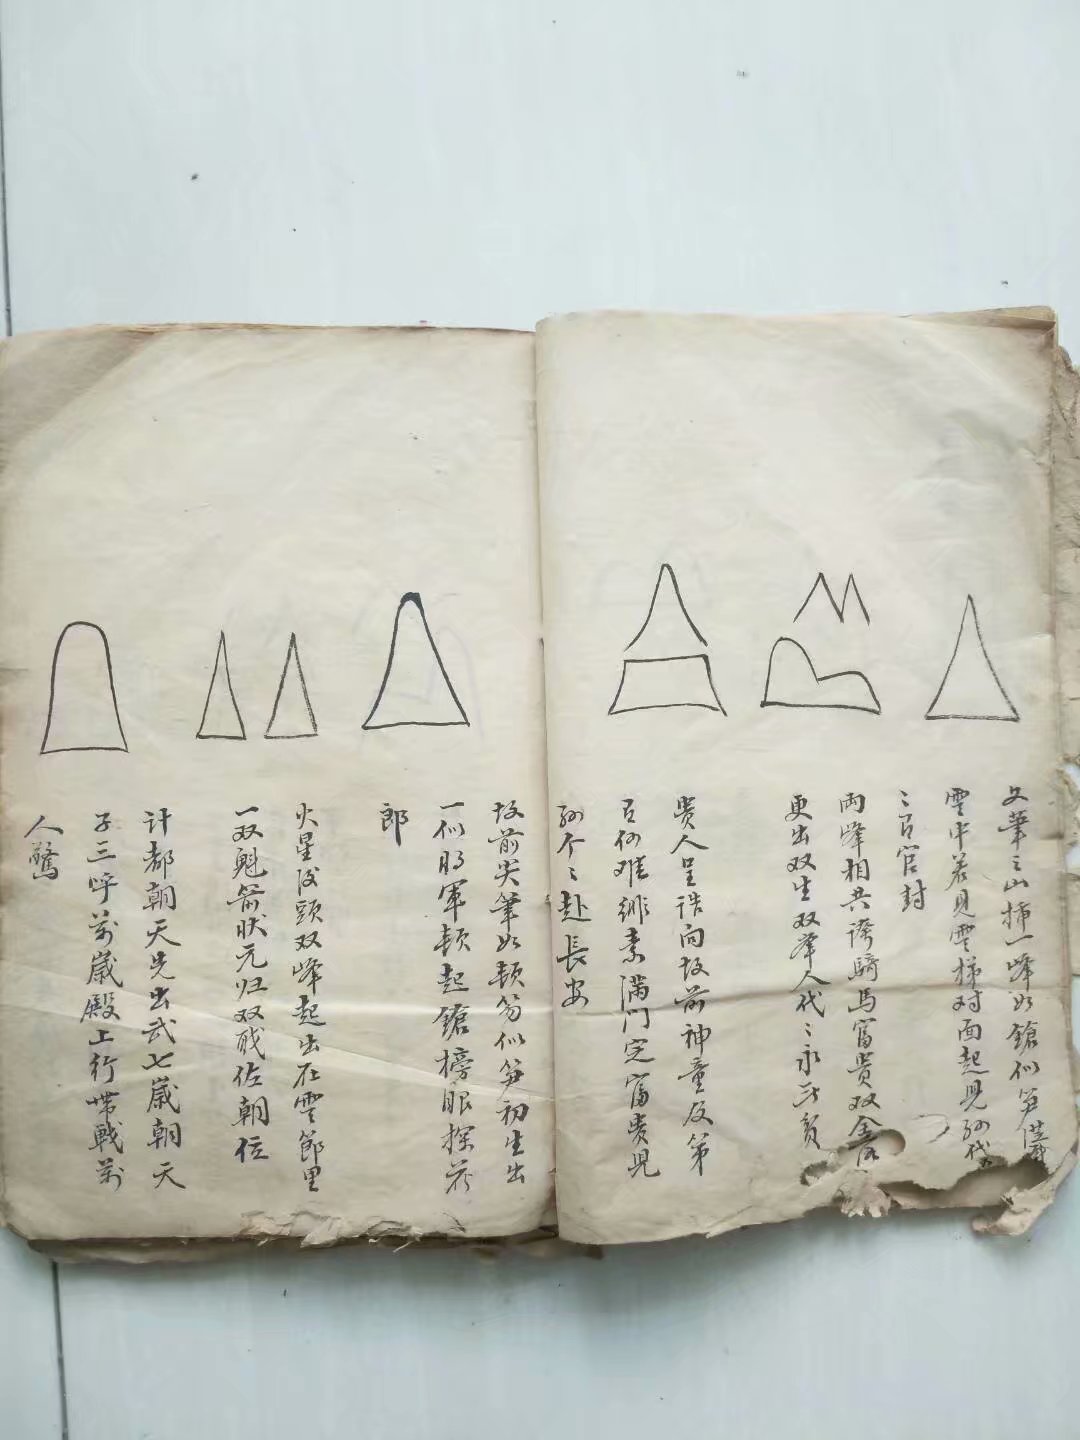 文筆之山揷一峰如鎗似笋
雲中若見雲梯对面起兒孫代
〻官封
両峰相共誇騎馬富貴双全
更出双生双峯人代〻永
貴人呈诰向坟前神童及第
何难緋素满门定富贵児
孙个〻赴長安
坟前尖筆如顿笏似笋初生出
一似将軍顿起鎗榜眼探花
郎
火星後頭双峰起出在雲節里
一双魁箭状元归双戝佐朝位
计都朝天先出武七歲朝天
子三呼萬歲殿上行帶戰萬
人驚